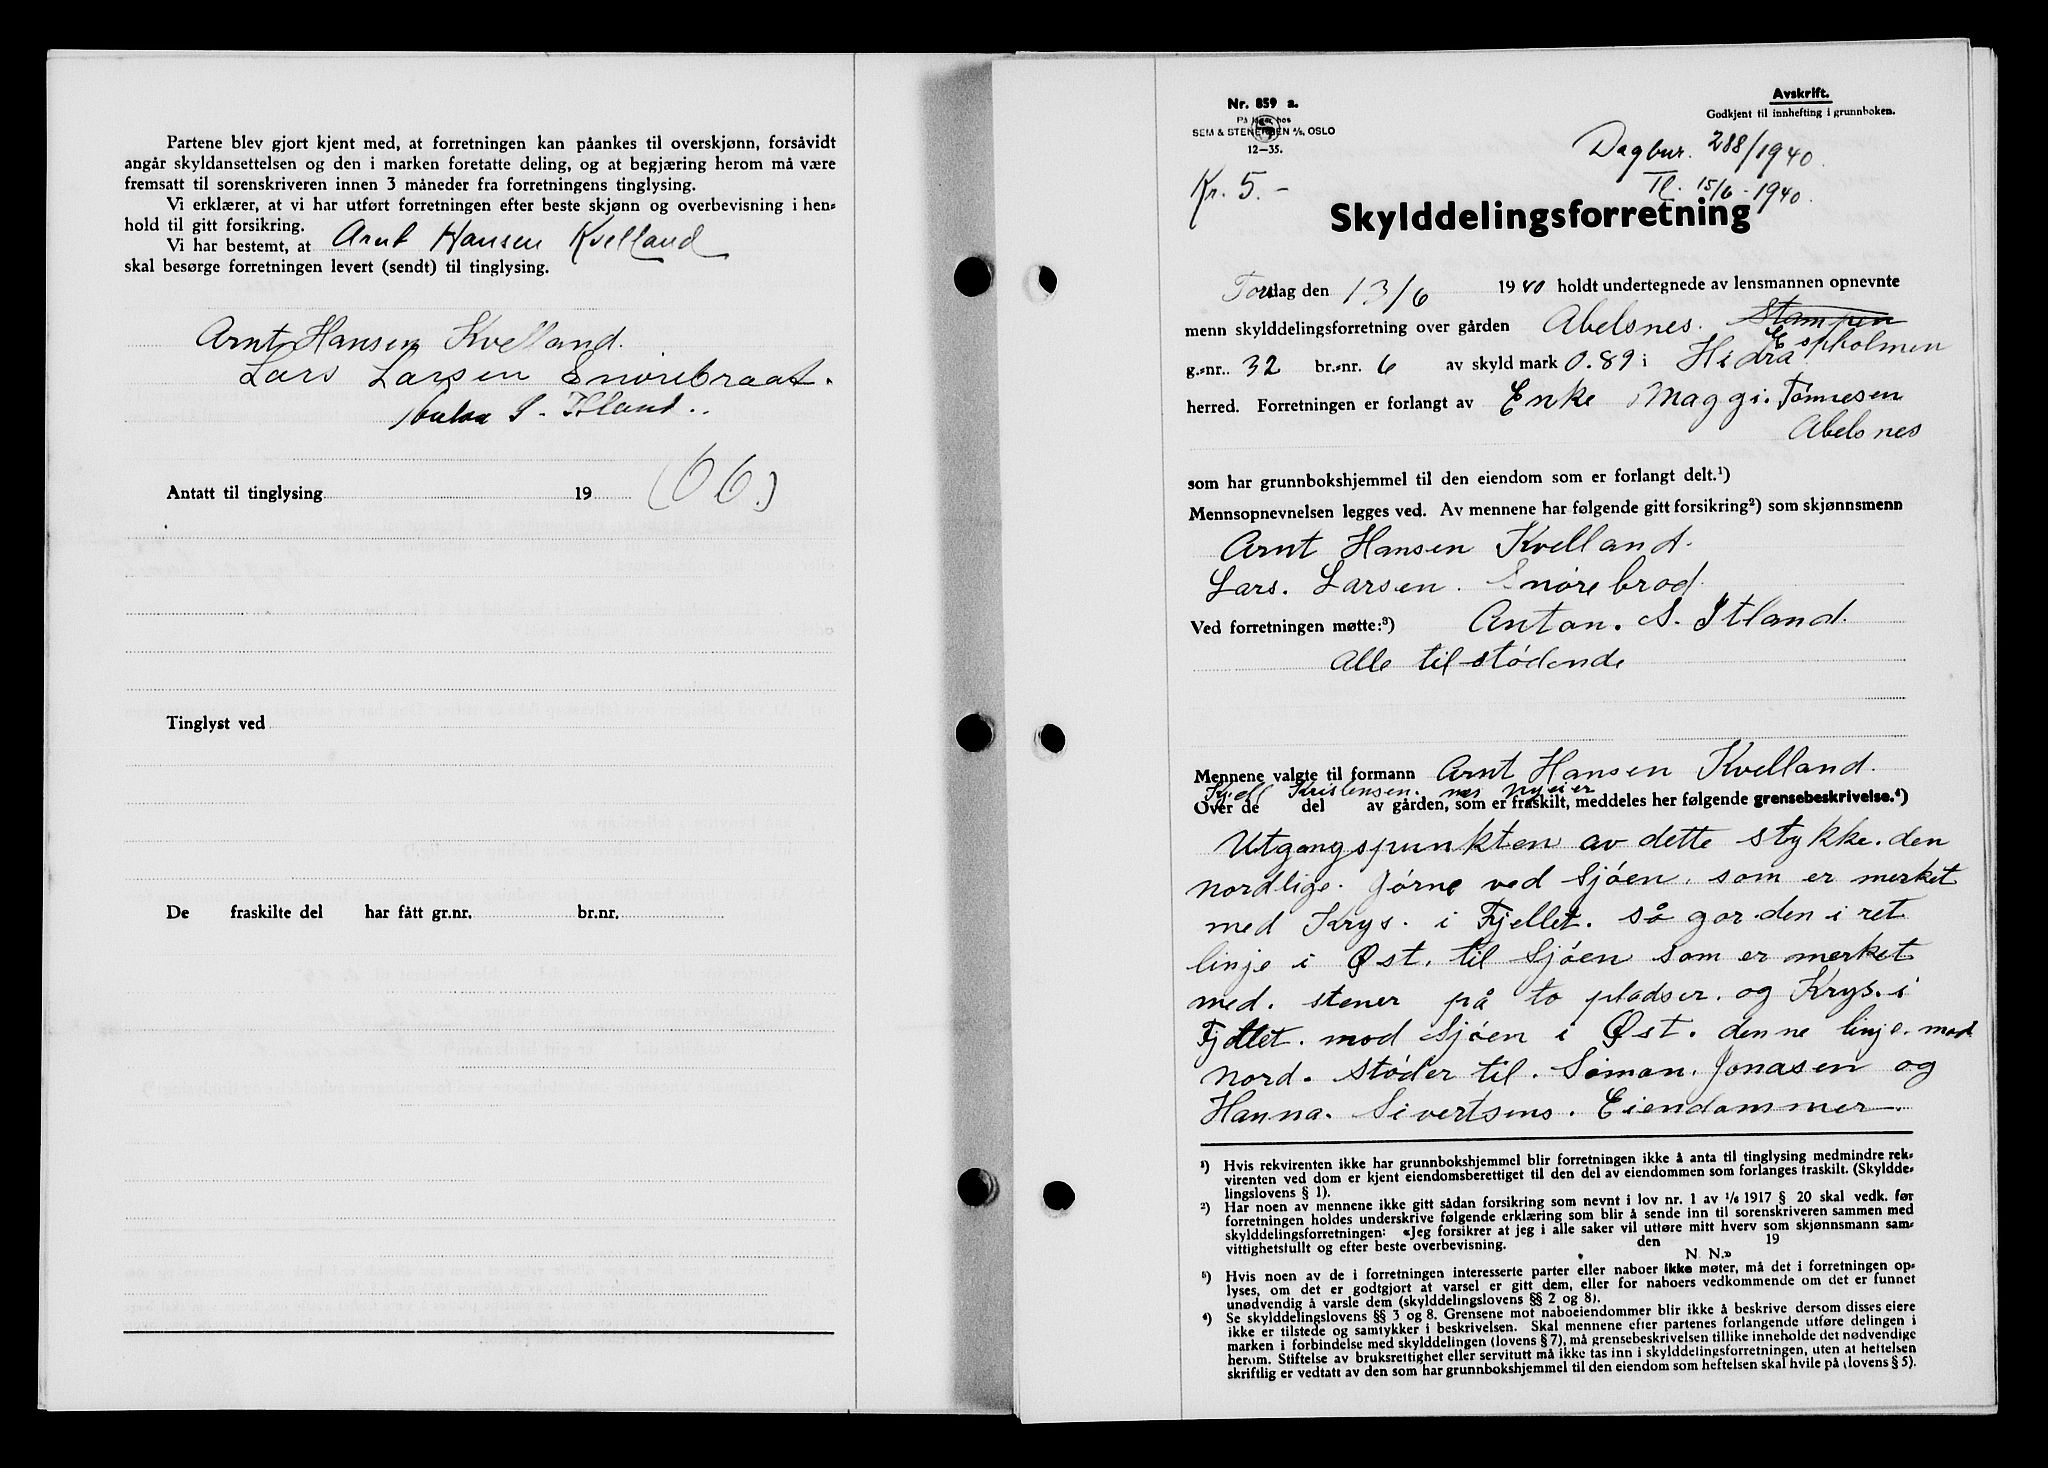 Partene blev gjort kjent med, at forretningen kan påankes til overskjønn, forsåvidt
angår skyldansettelsen og den i marken foretatte deling, og at begjæring herom må være
fremsatt til sorenskriveren innen 3 måneder fra forretningens tinglysing.
Vi erklærer, at vi har utført forretningen efter beste skjønn og overbevisning i hen-
hold til gitt forsikring.
Vi har bestemt, at Arnt Hansen Kvelland
skal besørge forretningen levert (sendt) til tinglysing.
Arnt Hansen Kvelland.
Lars Larsen Snørebraat.
S. Itland..
Antatt til tinglysing 19 (66.)
Tinglyst ved
De fraskilte del har fått gr.nr. br.nr.
Nr. 859 a.
På lager hos
SEM & STENERSEN A/S, OSLO
12-35.
Avskrift.
Godkjent til innhefting i grunnboken.
Dagbnr. 288/1940.
Kr. 5.-
Tl. 15/6-1940.
Skylddelingsforretning
Torsdag den 13/6 1940 holdt undertegnede av lensmannen opnevnte
menn skylddelingsforretning over gården Abelsnes. Stampen
Espholmen
g.-nr. 32 br.-nr. 6 av skyld mark 0.89 i Hidra
herred. Forretningen er forlangt av Enke Maggi. Tønnesen
Abelsnes
som har grunnbokshjemmel til den eiendom som er forlangt delt.¹)
Mennsopnevnelsen legges ved. Av mennene har følgende gitt forsikring²) som skjønnsmenn
Arnt Hansen Kvelland.
Lars. Larsen. Snørebrod.
Ved forretningen møtte:³) Anton. S. Itland.
Alle tilstødende
Mennene valgte til formann Arnt Hansen Kvelland.
Kjell Kristensen. nyeier
Over de del av gården, som er fraskilt, meddeles her følgende grensebeskrivelse.⁴)
Utgangspunkten av dette stykke. den
nordlige. Jørne ved Sjøen. som er merket
med Krys. i Fjellet. så gar den i ret
linje i Øst. til Sjøen som er merket
med. stener på to pladser. og Krys. i
Fjellet. mod Sjøen i Øst. denne linje. mod
Nord. støder til. Simon. Jonasen og
Hanna. Sivertsens. Eiendommer.
¹) Hvis rekvirenten ikke har grunnbokshjemmel blir forretningen ikke å anta til tinglysing medmindre rek-
virenten ved dom er kjent eiendomsberettiget til den del av eiendommen som forlanges fraskilt. (Skyldde-
lingslovens § 1).
²) Har noen av mennene ikke gitt sådan forsikring som nevnt i lov nr. 1 av 1/6 1917 § 20 skal vedk. før
forretningen holdes underskrive følgende erklæring som blir å sende inn til sorenskriveren sammen med
skylddelingsforretningen: «Jeg forsikrer at jeg i alle saker vil utføre mitt hverv som skjønnsmann sam-
vittighetsfullt og efter beste overbevisning. den 19
N. N.»
³) Hvis noen av de i forretningen interesserte parter eller naboer ikke møter, må det i forretningen op-
lyses, om det er godtgjort at varsel er gitt dem, eller for naboers vedkommende om det er funnet
unødvendig å varsle dem (skylddelingslovens §§ 2 og 8).
⁴) Se skylddelingslovens §§ 3 og 8. Grensene mot naboeiendommer blir ikke å beskrive dersom disses eiere
ikke er tilstede og samtykker i beskrivelsen. Skal mennene efter partenes forlangende utføre delingen i
marken i forbindelse med skylddelingen (lovens § 7), må grensebeskrivelsen tillike inneholde det nødvendige
herom. Stiftelse av bruksrettighet eller servitutt må ikke tas inn i skylddelingsforretningen, uten at heftelsen
skriftlig er vedtatt av den som har grunnbokshjemmel til den eiendom som heftelsen skal hvile på (lovens § 5).